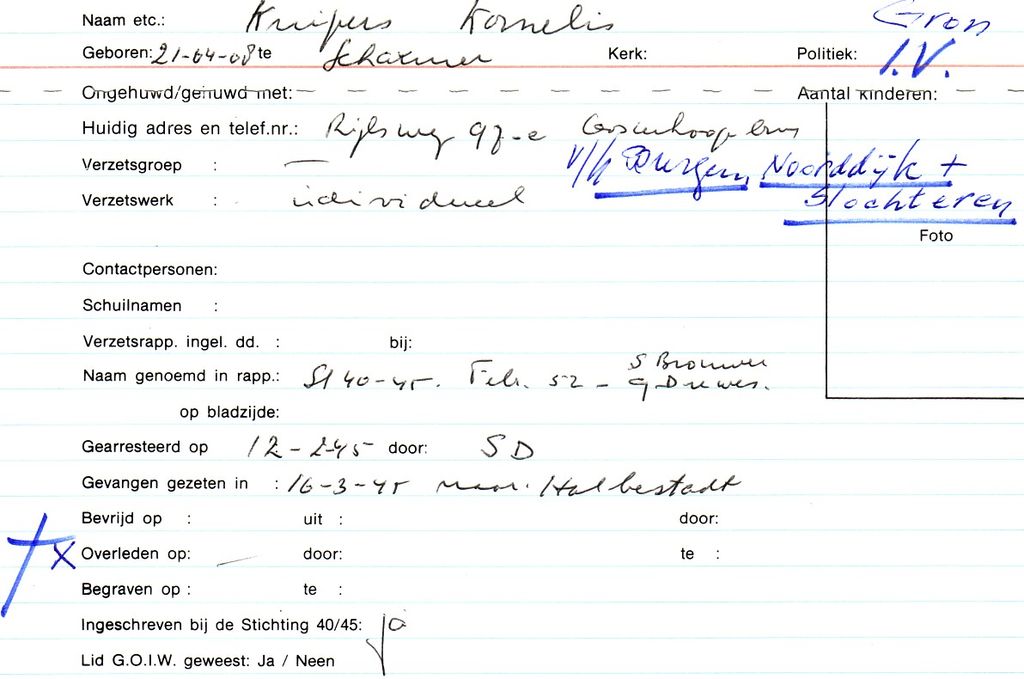 Naam etc.: Kuipers Kornelis Gron
Geboren: 21-04-08 te Scharmer Kerk: Politiek: I.V.
Ongehuwd/gehuwd met: Aantal kinderen:
Huidig adres en telef.nr.: Rijksweg 97-a
Verzetsgroep : — v/h Burgem. Noorddijk +
Verzetswerk : individueel Slochteren
Foto
Contactpersonen:
Schuilnamen :
Verzetsrapp. ingel. dd. : bij:
Naam genoemd in rapp.: St 40-45. Febr. 52 - S Brouwer
G Drewes.
op bladzijde:
Gearresteerd op 12-2-45 door: SD
Gevangen gezeten in : 16-3-45 naar Halbestadt
Bevrijd op : uit : door:
x Overleden op: — door: te :
Begraven op : te :
Ingeschreven bij de Stichting 40/45: ja
Lid G.O.I.W. geweest: Ja / Neen